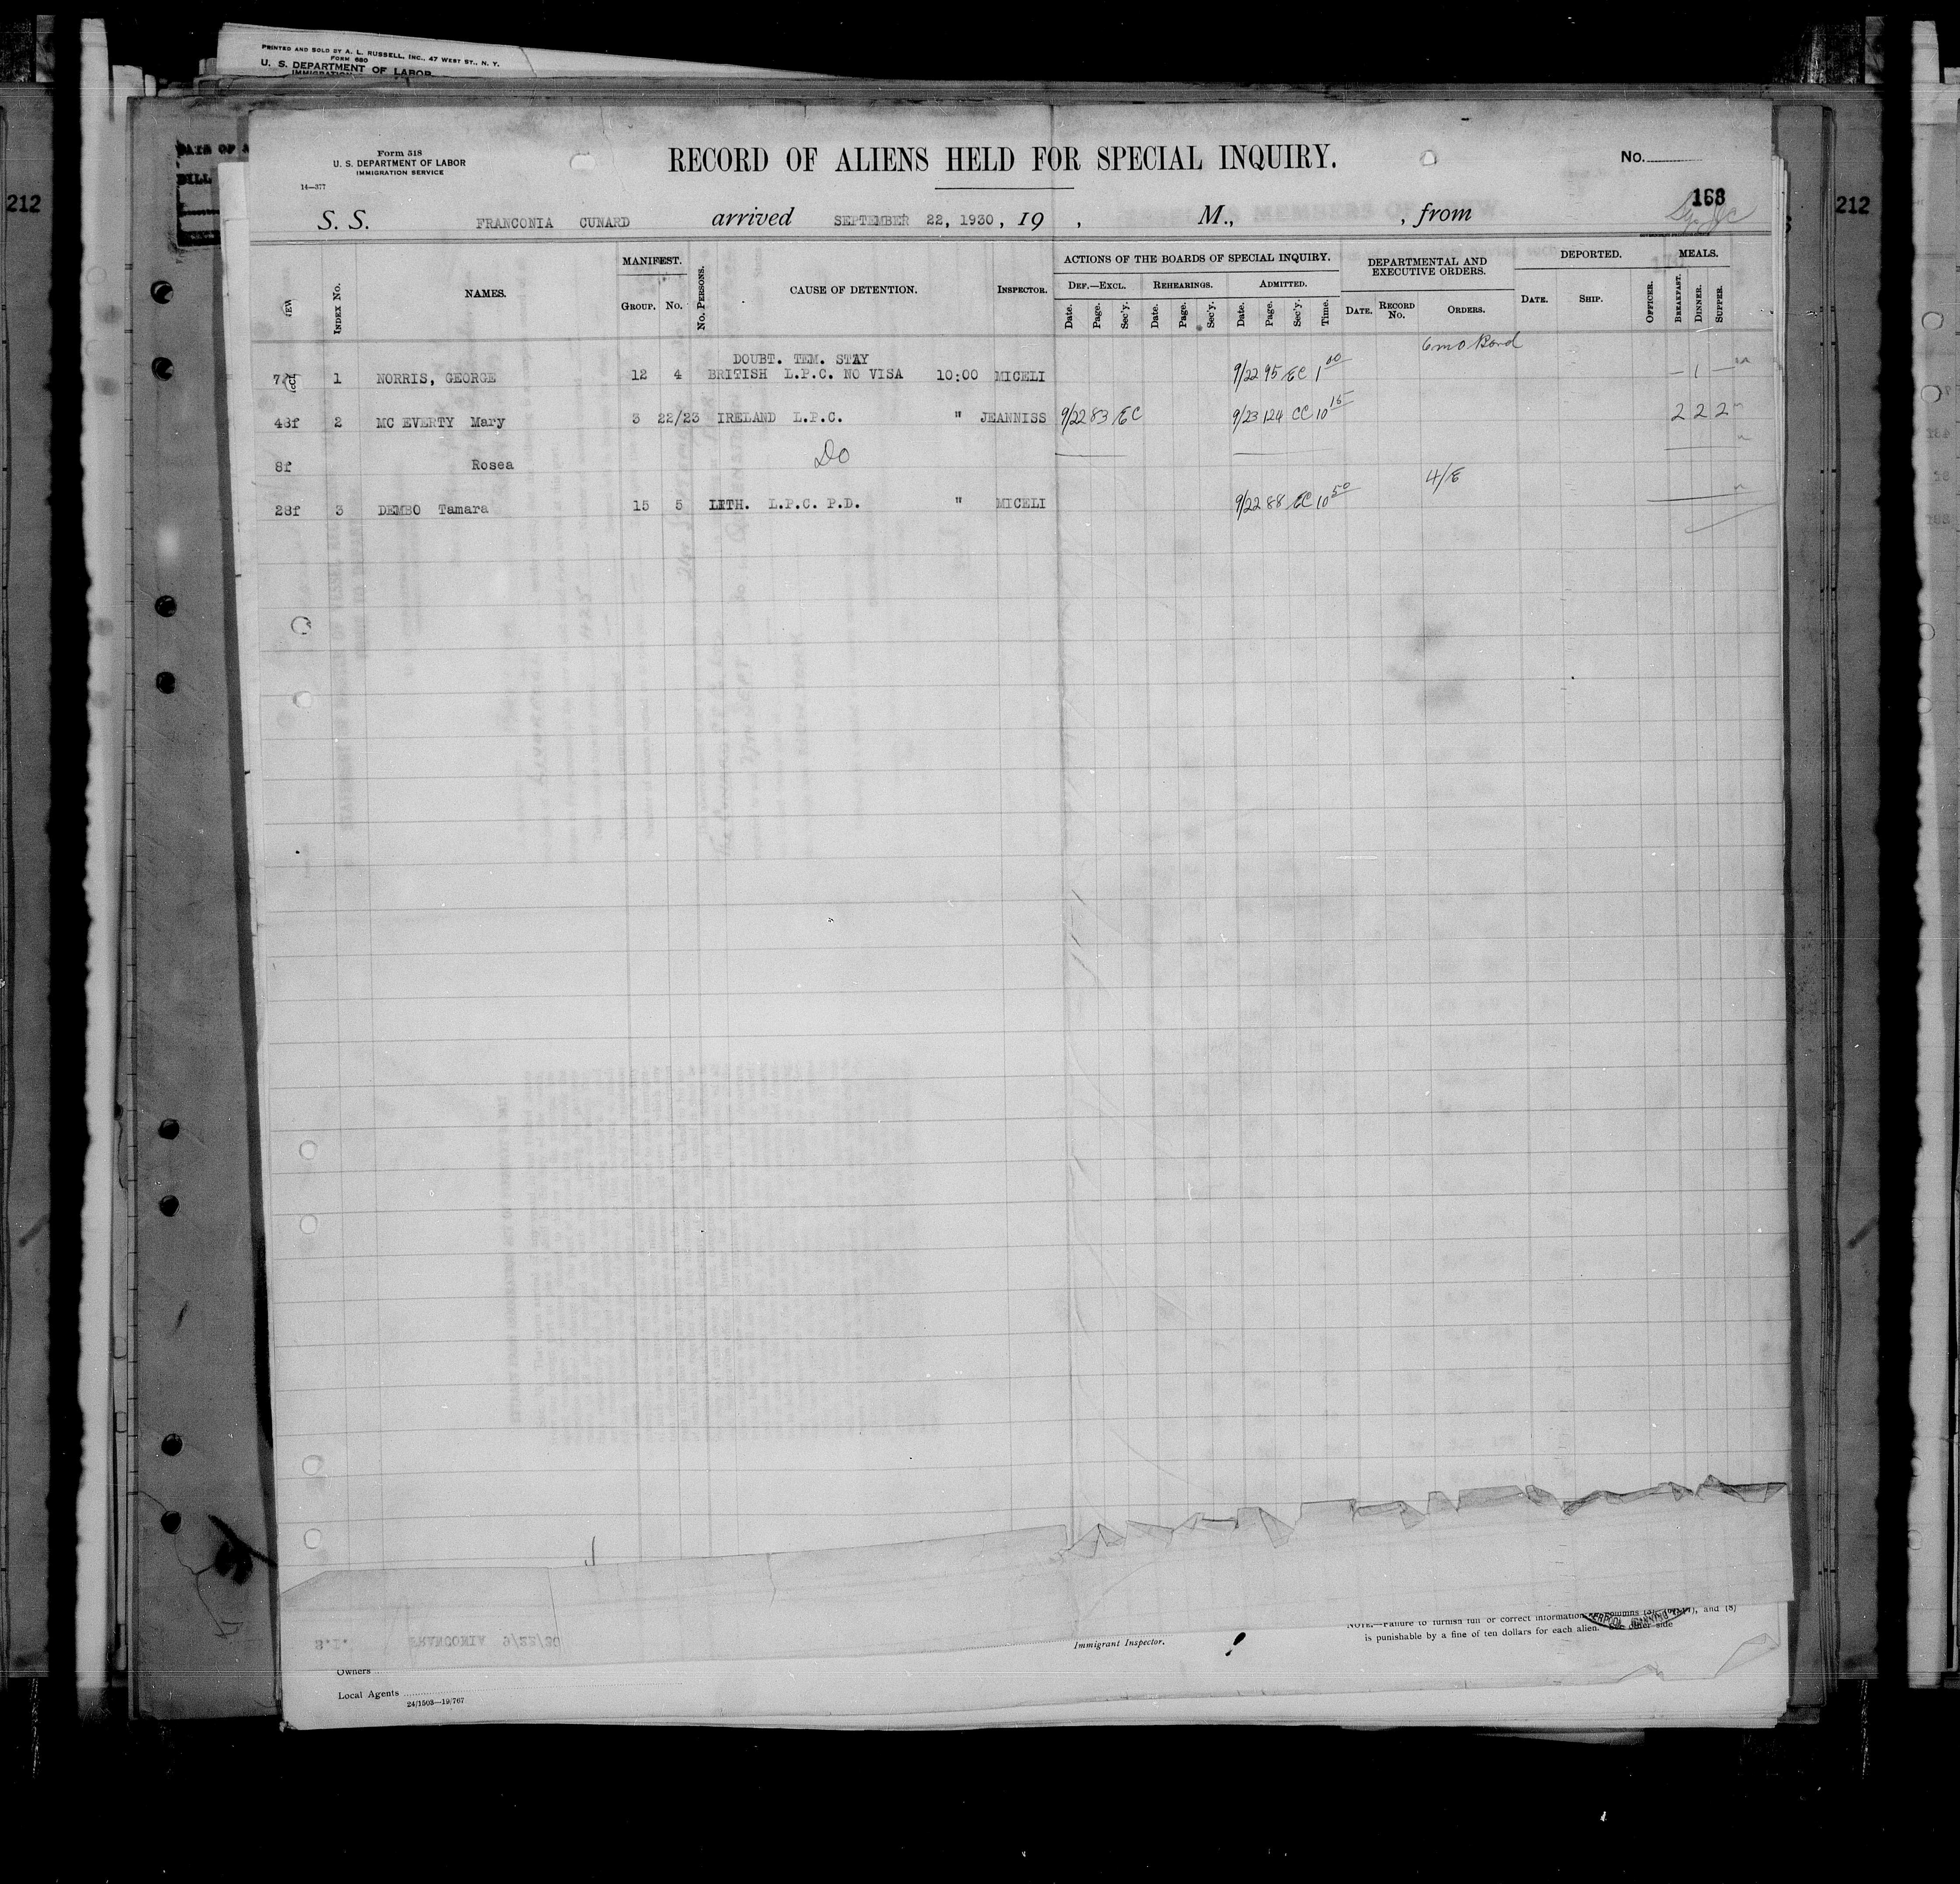 PRINTED AND SOLD BY A. L. RUSSELL, INC., 47 WEST ST., N. Y.
FORM 680
U. S. DEPARTMENT OF LABOR
212
212
Form 518
U. S. DEPARTMENT OF LABOR
IMMIGRATION SERVICE
14—377
RECORD OF ALIENS HELD FOR SPECIAL INQUIRY.
No.
168
S. S. FRANCONIA CUNARD arrived SEPTEMBER 22, 1930, 19 , M., , from
INDEX No. NAMES. MANIFEST. GROUP. No. No. PERSONS. CAUSE OF DETENTION. INSPECTOR.
ACTIONS OF THE BOARDS OF SPECIAL INQUIRY.
DEF.—EXCL. Date. Page. Sec'y. REHEARINGS. Date. Page. Sec'y. ADMITTED. Date. Page. Sec'y. Time.
DEPARTMENTAL AND EXECUTIVE ORDERS. DATE. RECORD No. ORDERS.
DEPORTED. DATE. SHIP. OFFICER.
MEALS. BREAKFAST. DINNER. SUPPER.
DOUBT. TEM. STAY 6 mo Bond
1 NORRIS, GEORGE 12 4 BRITISH L.P.C. NO VISA 10:00 MICELI 9/22 95 EC 1 00 — 1 —
48f 2 MC EVERTY Mary 3 22/23 IRELAND L.P.C. " JEANNISS 9/22 83 EC 9/23 124 CC 10 15 2 2 2
8f Rosea Do
4/E
28f 3 DEMBO Tamara 15 5 LITH. L.P.C. P.D. " MICELI 9/22 88 EC 10 50
S.I. FRANCONIA 9/22/30
Immigrant Inspector.
NOTE.—Failure to furnish full or correct information columns (3), and (8)
is punishable by a fine of ten dollars for each alien. See other side
Owners
Local Agents
24/1503—19/767